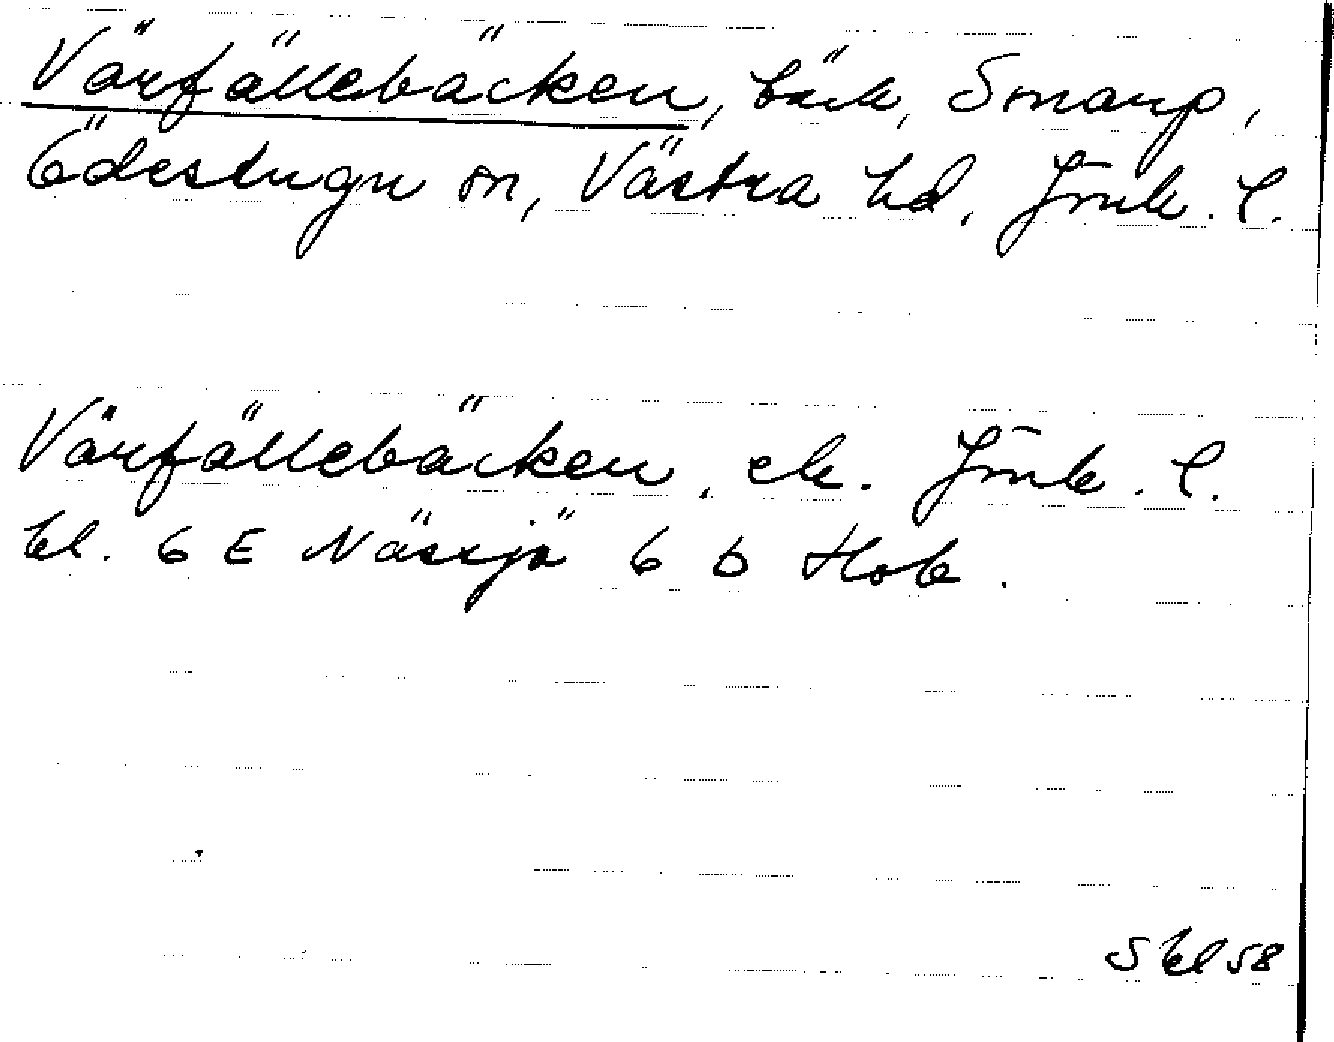 Värfällebäcken, bäck, Smarp,
Ödestugu sn, Västra hd, Jönk. l.
Värfällebäcken, ek. Jönk. l.
bl. 6 E Nässjö 6 b Hok.
S bl 58